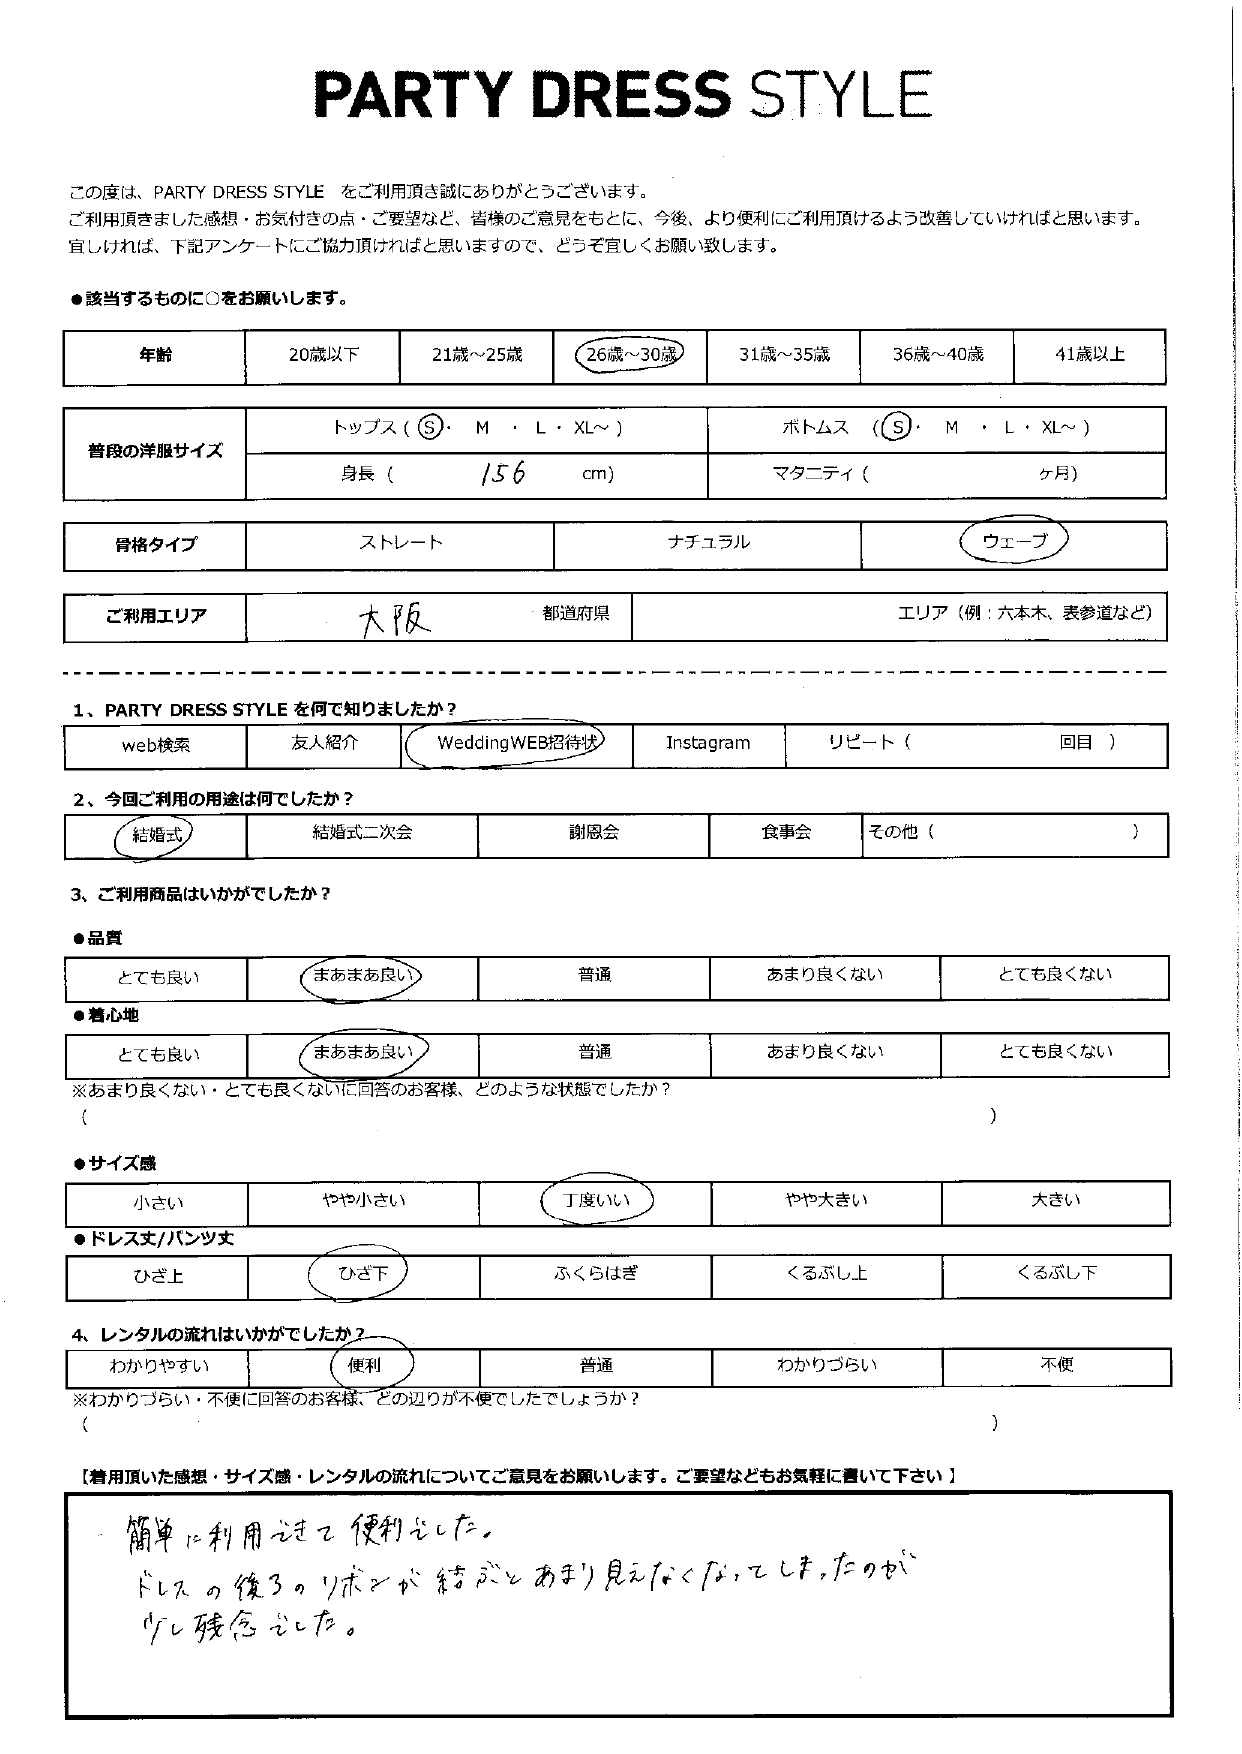 PARTY DRESS STYLE
この度は、PARTY DRESS STYLE をご利用頂き誠にありがとうございます。
ご利用頂きました感想・お気付きの点・ご要望など、皆様のご意見をもとに、今後、より便利にご利用頂けるよう改善していければと思います。
宜しければ、下記アンケートにご協力頂ければと思いますので、どうぞ宜しくお願い致します。
●該当するものに○をお願いします。
年齢 20歳以下 21歳～25歳 26歳～30歳 31歳～35歳 36歳～40歳 41歳以上
普段の洋服サイズ
トップス ( S・ M ・ L ・ XL～ ) ボトムス ( S・ M ・ L ・ XL～ )
身長 ( 156 cm) マタニティ ( ヶ月)
骨格タイプ ストレート ナチュラル ウェーブ
ご利用エリア 大阪 都道府県 エリア（例：六本木、表参道など）
1、PARTY DRESS STYLE を何で知りましたか？
web検索 友人紹介 WeddingWEB招待状 Instagram リピート ( 回目 )
2、今回ご利用の用途は何でしたか？
結婚式 結婚式二次会 謝恩会 食事会 その他 ( )
3、ご利用商品はいかがでしたか？
●品質
とても良い まあまあ良い 普通 あまり良くない とても良くない
●着心地
とても良い まあまあ良い 普通 あまり良くない とても良くない
※あまり良くない・とても良くないに回答のお客様、どのような状態でしたか？
( )
●サイズ感
小さい やや小さい 丁度いい やや大きい 大きい
●ドレス丈/パンツ丈
ひざ上 ひざ下 ふくらはぎ くるぶし上 くるぶし下
4、レンタルの流れはいかがでしたか？
わかりやすい 便利 普通 わかりづらい 不便
※わかりづらい・不便に回答のお客様、どの辺りが不便でしたでしょうか？
( )
【着用頂いた感想・サイズ感・レンタルの流れについてご意見をお願いします。ご要望などもお気軽に書いて下さい】
簡単に利用できて便利でした。
ドレスの後ろのリボンが結ぶとあまり見えなくなってしまったのが
少し残念でした。